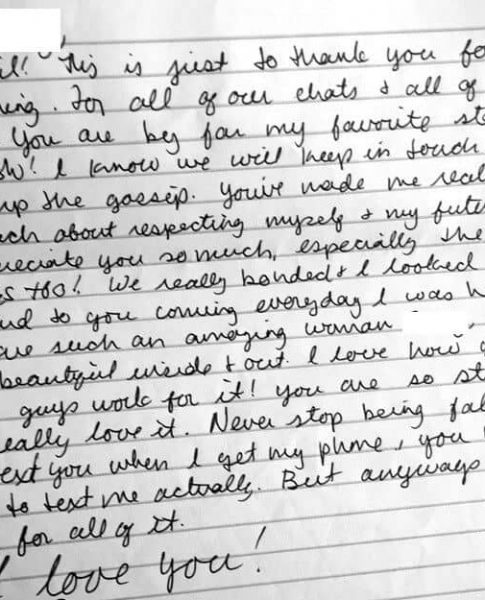 ! This is just to thank you
For all of our chats & all of
You are by far my favorite
! I know we will keep in touch
up the gossip. You've made me
about respecting myself & my
you so much, especially the
too! We really bonded & I looked
to you coming everyday I was
such an amazing woman
beautiful inside & out. I love how
guys work for it! You are so
love it. Never stop being
you when I get my phone, you
to text me actually. But anyways
for all of it.
love you!